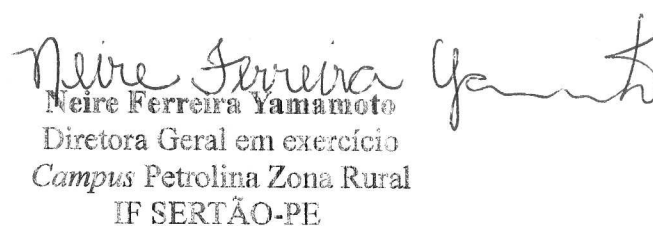 Neire Ferreira Yamamoto
Neire Ferreira Yamamoto
Diretora Geral em exercício
Campus Petrolina Zona Rural
IF SERTÃO-PE